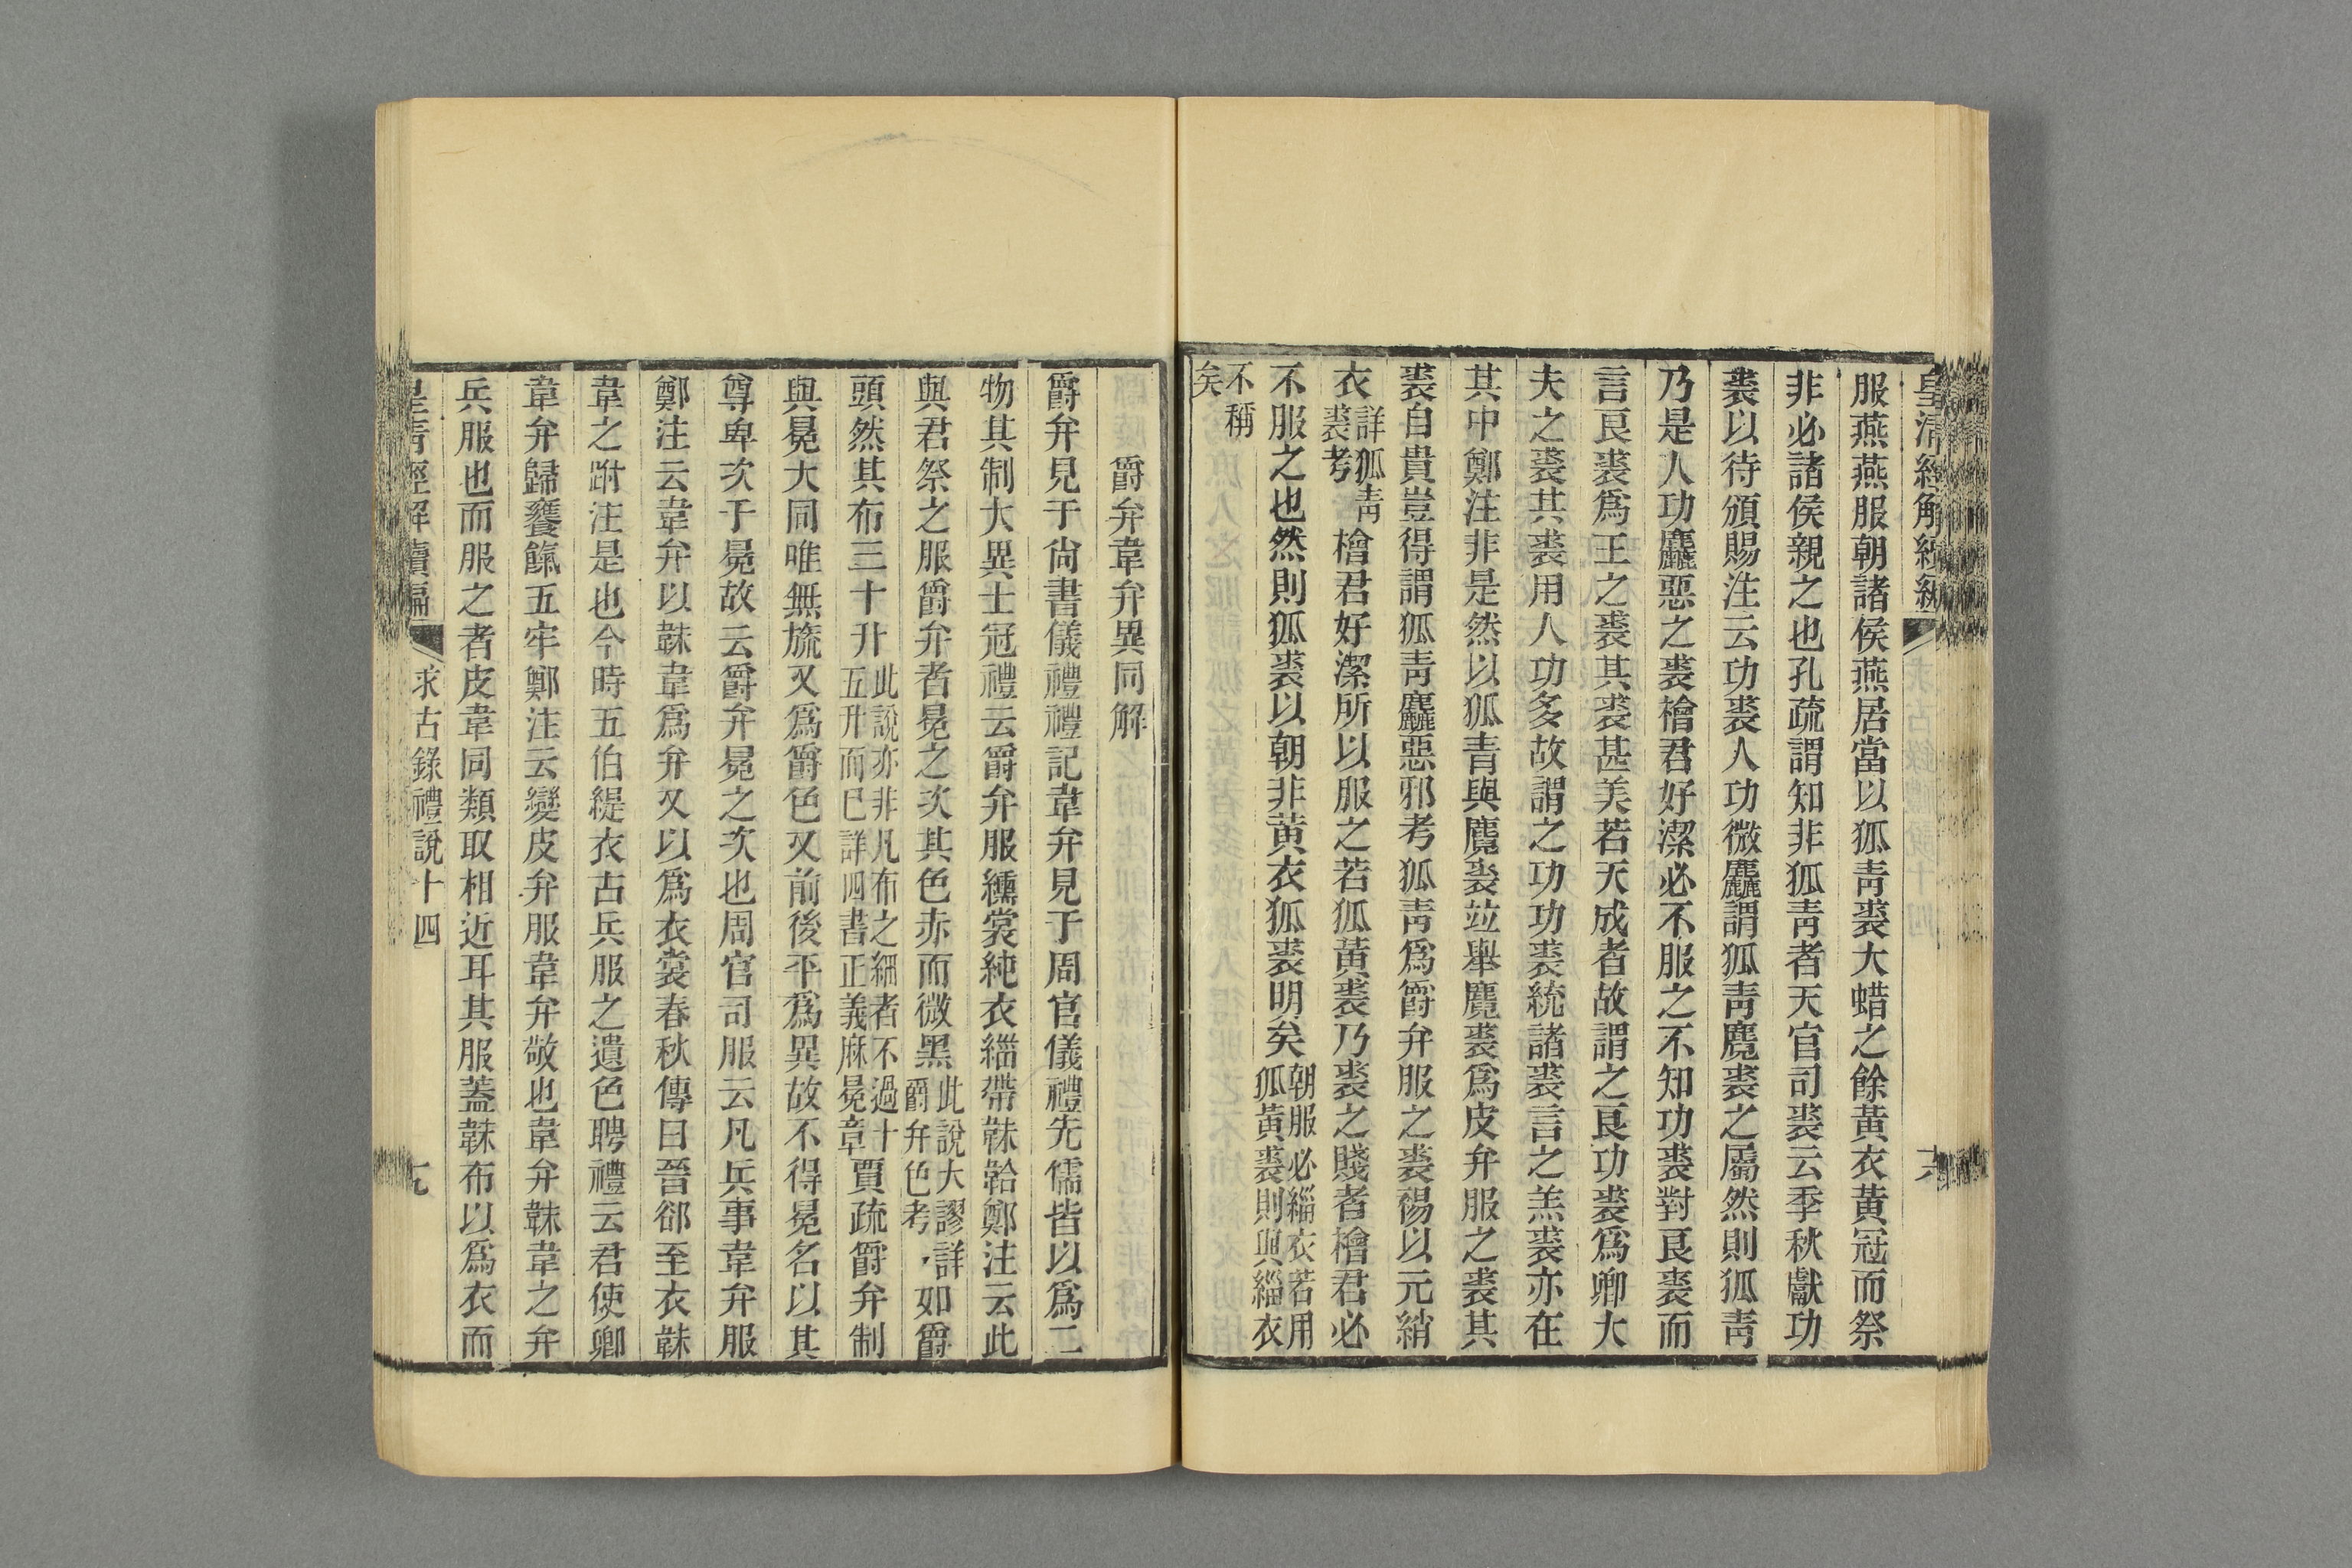 皇清經解續編
服燕燕服朝諸侯燕居當以狐靑裘大蜡之餘黃衣黃冠而祭
非必諸侯親之也孔疏謂知非狐靑者天官司裘云季秋獻功
裘以待頒賜注云功裘人功微麤謂狐靑麛裘之屬然則狐靑
乃是人功麤惡之裘檜君好潔必不服之不知功裘對良裘而
言良裘爲王之裘其裘甚美若天成者故謂之良功裘爲卿大
夫之裘其裘用人功多故謂之功功裘統諸裘言之羔裘亦在
其中鄭注非是然以狐青與麛裘竝舉麛裘爲皮弁服之裘其
裘白貴豈得謂狐靑麤惡邪考狐靑爲爵弁服之裘裼以元綃
衣詳狐靑裘考檜君好潔所以服之若狐黃裘乃裘之賤者檜君必
不服之也然則狐裘以朝非黃衣狐裘明矣朝服必緇衣若用狐黃裘則與緇衣
不稱矣
爵弁韋弁異同解
爵弁見于尙書儀禮禮記韋弁見于周官儀禮先儒皆以爲二
物其制大異士冠禮云爵弁服纁裳純衣緇帶韎韐鄭注云此
與君祭之服爵弁者冕之次其色赤而微黑此說大謬詳爵弁色考如爵
頭然其布三十升此說亦非凡布之細者不過十五升而已詳四書正義麻冕章賈疏爵弁制
與冕大同唯無旒又爲爵色又前後平爲異故不得冕名以其
尊卑次于冕故云爵弁冕之次也周官司服云凡兵事韋弁服
鄭注云韋弁以韎韋爲弁又以爲衣裳春秋傳曰晉郤至衣韎
韋之跗注是也今時五伯緹衣古兵服之遺色聘禮云君使卿
韋弁歸饔餼五牢鄭注云變皮弁服韋弁敬也韋弁韎韋之弁
兵服也而服之者皮韋同類取相近耳其服蓋韎布以爲衣而
皇淸經解續編 求古錄禮說十四